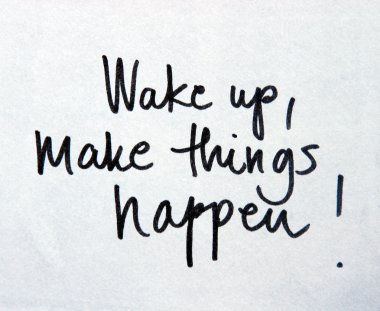 Wake up,
make things
happen!